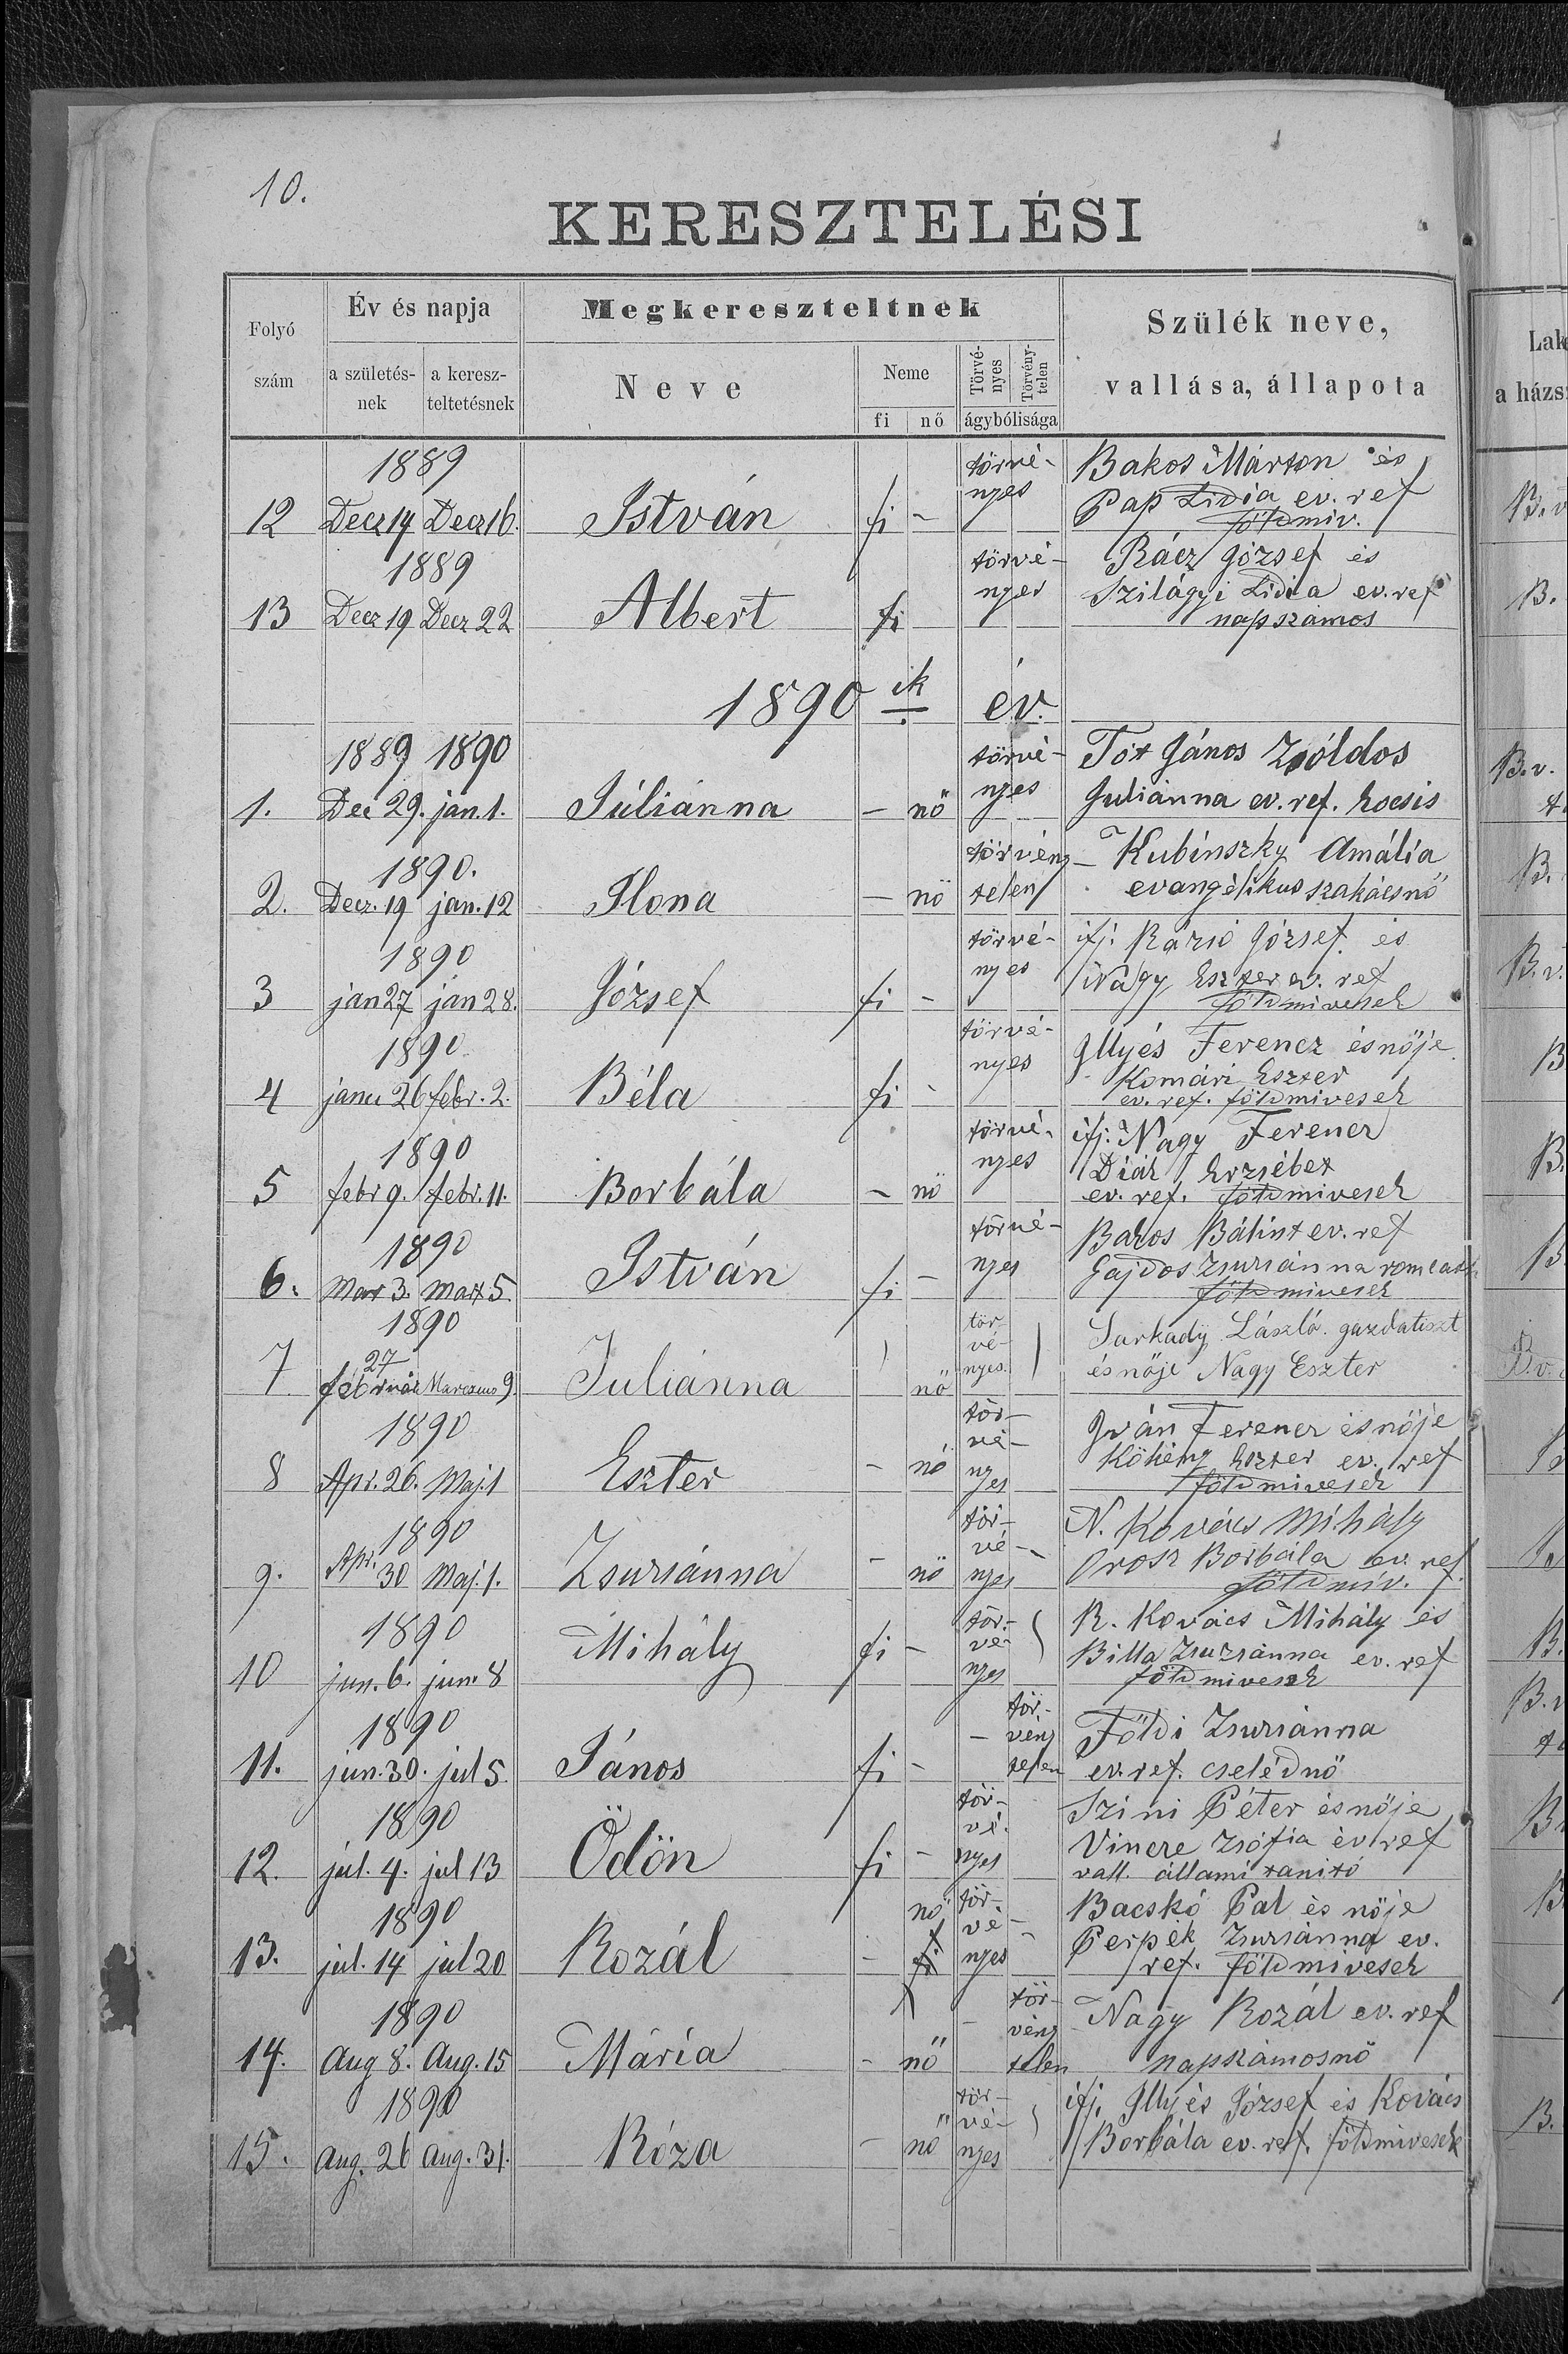 10.
KERESZTELÉSI
Folyó szám
Év és napja
a születés-nek
a keresz-teltetésnek
Megkereszteltnek
Neve
Neme
fi
nő
Törvé-nyes
Törvény-telen
ágybólisága
Szülék neve,
vallása, állapota
1889 törvé- Bakos Márton és
nyes Pap Lidia ev. ref
12 Decz 14 Decz 16. István fi - földmiv.
1889 törvé- Rácz József és
nyes Szilágyi Lidia ev. ref
13 Decz 19 Decz 22 Albert fi napszámos
1890 ik év.
1889 1890 törvé- Tót János Zsóldos
1. Dec 29. jan. 1. Júliánna - nő nyes Juliánna ev. ref. kocsis
1890. törvény- Kubinszky Amália
2. Decz. 19 jan. 12 Ilona - nő telen evangélikus szakácsnő
1890 törvé- ifj. Rázsó József és
nyes Nagy Eszter ev. ref
3 jan 27 jan 28. József fi - földmivesek
1890 törvé- Illyés Ferencz és nője
nyes Komári Eszter
4 janu 26 febr. 2. Béla fi - ev. ref. földmivesek
1890 törvé- ifj. Nagy Ferencz
nyes Diák Erzsébet
5 febr 9. febr. 11. Borbála - nő ev. ref. földmivesek
1890 törvé- Bakos Bálint ev. ref
nyes Gajdos Zsuzsánna rom cath
6. Mart 3. Mart 5. István fi - földmivesek
1890 tör- Sarkady László gazdatiszt
27 vé- és nője Nagy Eszter
7 február Marczius 9. Juliánna nő nyes.
1890 tör- Iván Ferencz és nője
vé- Kökény Eszter ev. ref
8 Apr. 26. Maj. 1 Eszter - nő nyes földmivesek
1890 tör- N. Kovács Mihály
Apr. vé- - Orosz Borbála ev. ref.
9. 30 Maj. 1. Zsuzsánna - nő nyes földmiv.
1890 tör- R. Kovács Mihály és
vé- Billa Zsuzsánna ev. ref
10 jun. 6. jun. 8 Mihály fi - nyes földmivesek
1890 tör-
- vény Földi Zsuzsánna
11. jun. 30. jul 5. János fi - telen ev. ref. cselédnő
1890 tör- Szini Péter és nője
vé- Vincze Zsófia ev ref
12. jul. 4. jul 13 Ödön fi - nyes vall. állami tanitó
1890 nő tör- Bacskó Pál és nője
vé- - Perpék Zsuzsánna ev.
13. jul. 14 jul 20 Rozál - fi nyes ref. földmivesek
1890 - tör-
vény Nagy Rozál ev. ref
14. Aug 8. Aug. 15 Mária - nő telen napszámosnő
1890 tör- ifj. Illyés József és Kovács
vé- Borbála ev. ref. földmivesek
15. Aug. 26 Aug. 31. Róza - nő nyes
Lak
a házs
B. v
B.
B. v.
B.
B. v.
B
B.
B.
B. v.
B.
B. v
B
B.